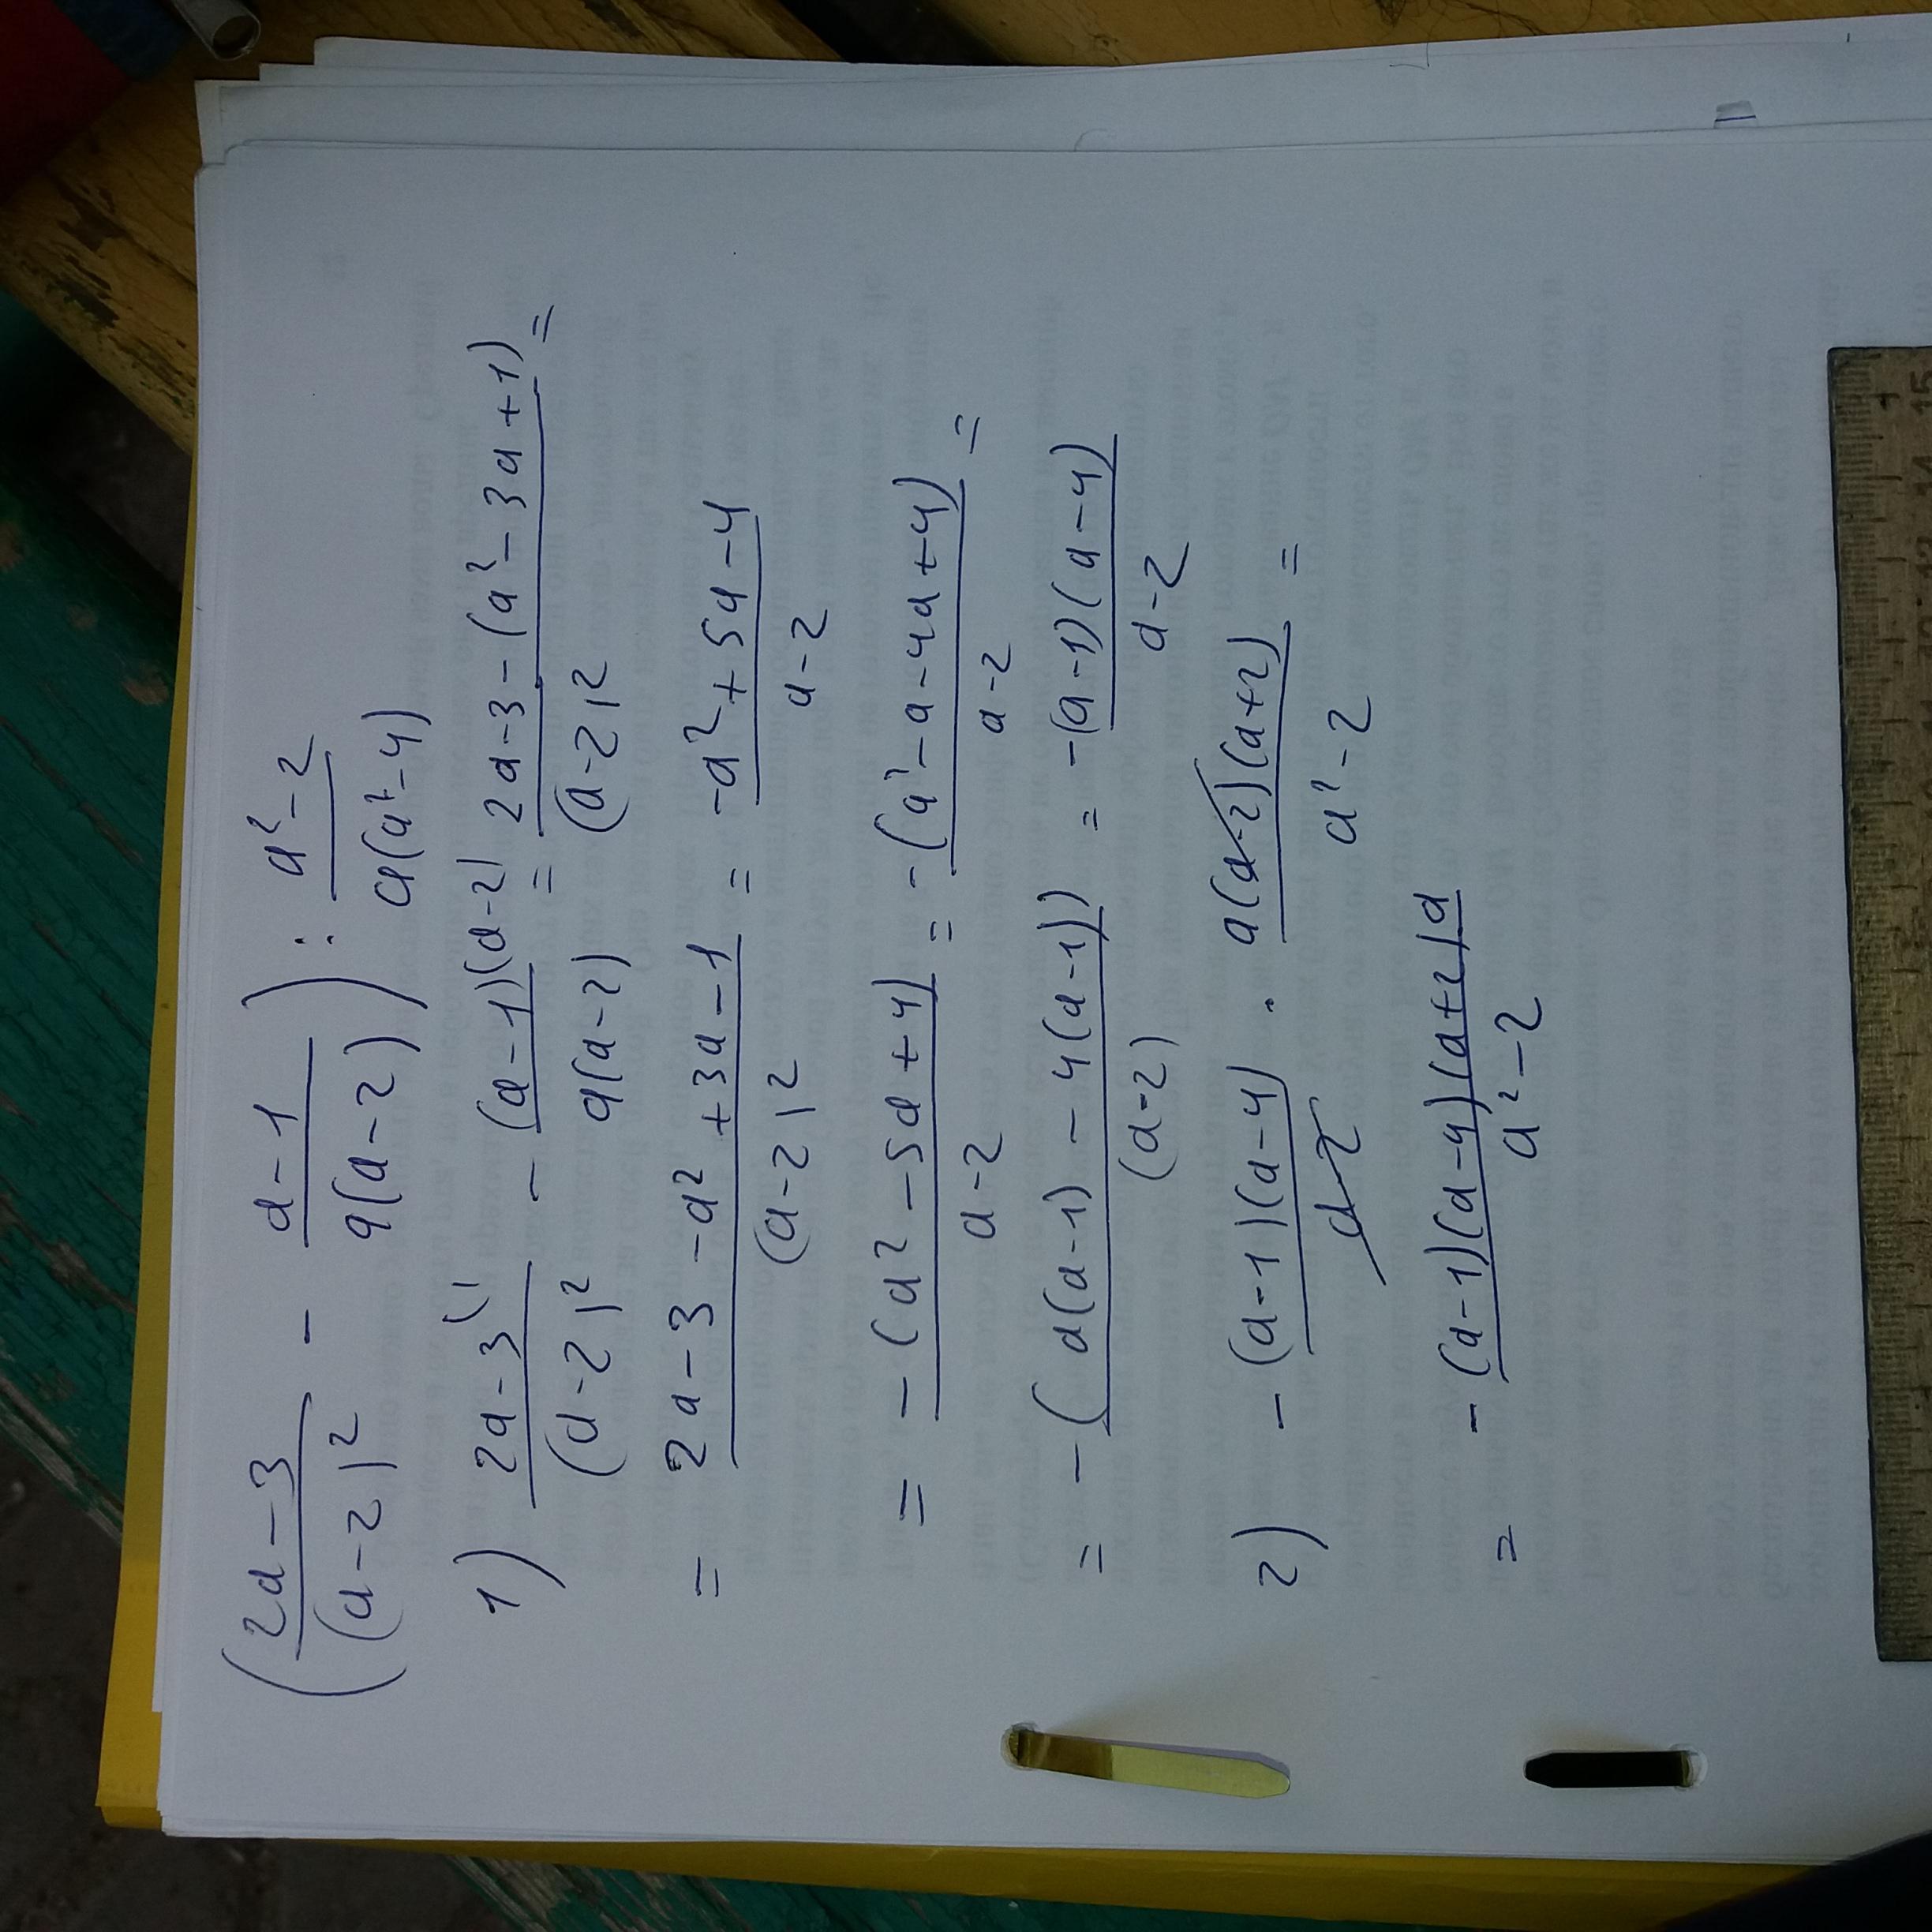 (2a-3/(a-2)² - a-1/a(a-2)) : a²-2/a(a²-4)
1) 2a-3⁽¹/(a-2)² - (a-1)(a-2)/a(a-2) = 2a-3-(a²-3a+1)/(a-2)² =
= 2a-3-a²+3a-1/(a-2)² = -a²+5a-4/a-2
= -(a²-5a+4)/a-2 = -(a²-a-4a+4)/a-2 =
= -(a(a-1)-4(a-1))/(a-2) = -(a-1)(a-4)/a-2
2) -(a-1)(a-4)/a-2 · a(a-2)(a+2)/a²-2 =
= -(a-1)(a-4)(a+2)a/a²-2